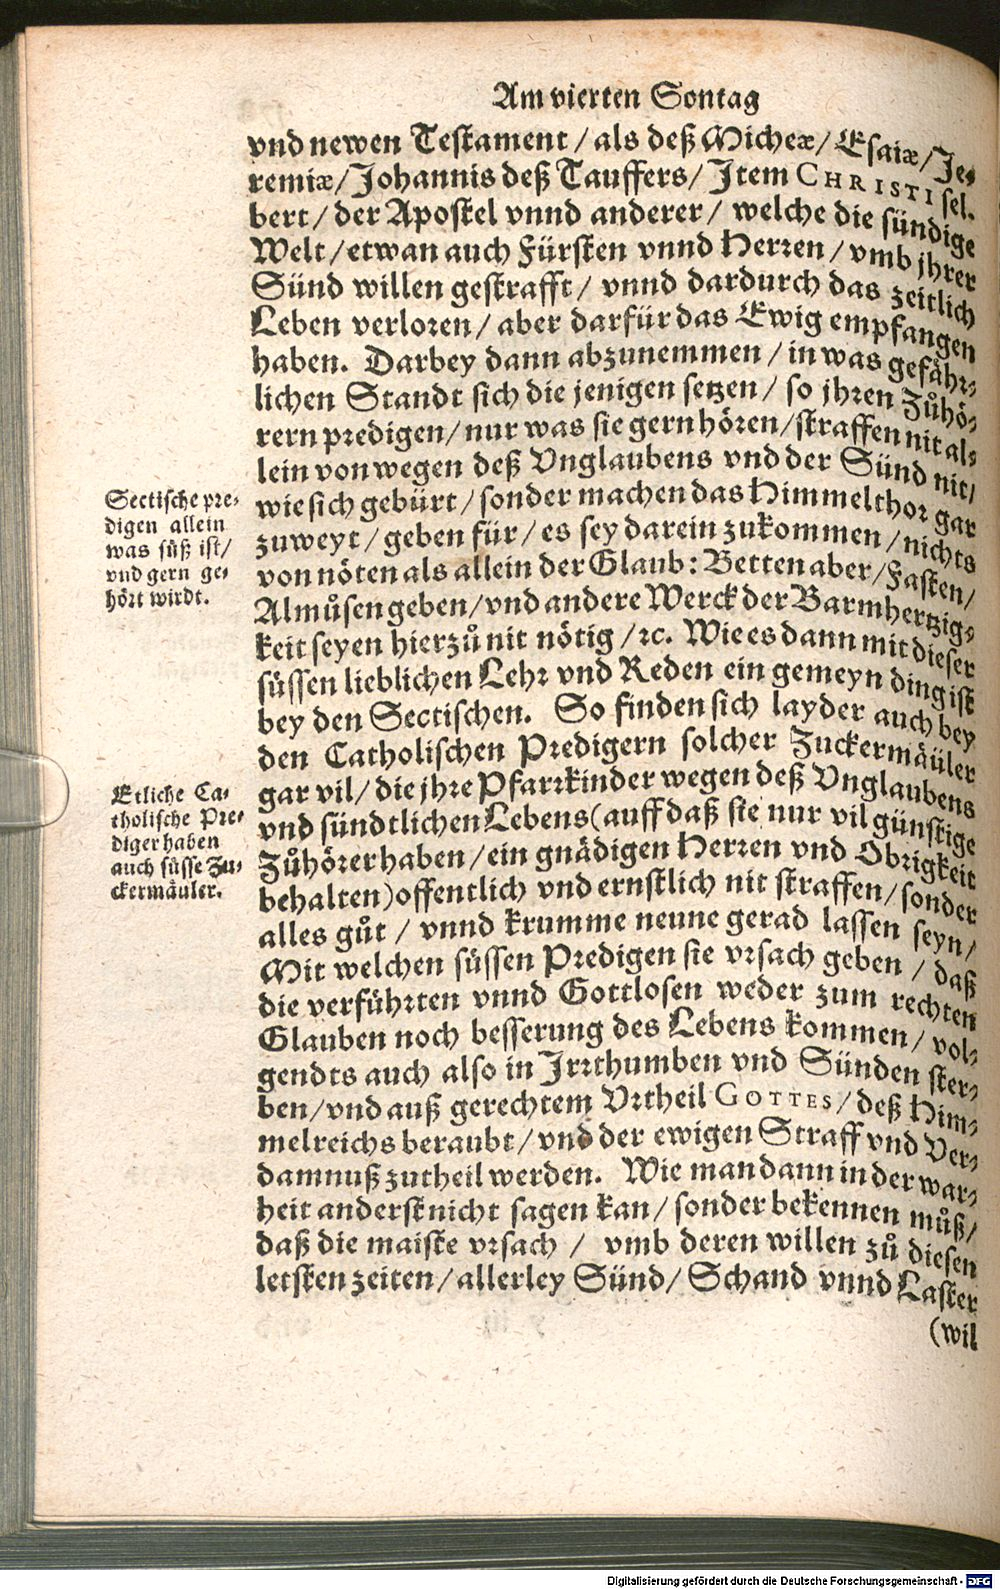 Am vierten Sontag
vnd newen Testament / als deß Micheæ / Esaiæ / Je-
remiæ / Johannis deß Tauffers / Jtem CHRISTI sel-
bert / der Apostel vnnd anderer / welche die sündige
Welt / etwan auch Fürsten vnnd Herren / vmb jhrer
Sünd willen gestrafft / vnnd dardurch das zeitlich
Leben verloren / aber darfür das Ewig empfangen
haben. Darbey dann abzunemmen / in was gefåhr-
lichen Standt sich die jenigen setzen / so jhren Zůhö-
rern predigen / nur was sie gern hören / straffen nit al-
lein von wegen deß Vnglaubens vnd der Sünd nit /
wie sich gebürt / sonder machen das Himmelthor gar
zuweyt / geben für / es sey darein zukommen / nichts
von nöten als allein der Glaub: Betten aber / Fasten /
Almůsen geben / vnd andere Werck der Barmhertzig-
keit seyen hierzů nit nötig / ꝛc. Wie es dann mit dieser
süssen lieblichen Lehr vnd Reden ein gemeyn ding ist
bey den Sectischen. So finden sich layder auch bey
den Catholischen Predigern solcher Zuckermäüler
gar vil / die jhre Pfarrkinder wegen deß Vnglaubens
vnd sündtlichen Lebens (auff daß sie nur vil günstige
Zůhörer haben / ein gnädigen Herren vnd Obrigkeit
behalten) offentlich vnd ernstlich nit straffen / sonder
alles gůt / vnnd krumme neune gerad lassen seyn /
Mit welchen süssen Predigen sie vrsach geben / daß
die verführten vnnd Gottlosen weder zum rechten
Glauben noch besserung des Lebens kommen / vol-
gendts auch also in Jrrthumben vnd Sünden ster-
ben / vnd auß gerechtem Vrtheil GOTTES / deß Him-
melreichs beraubt / vnd der ewigen Straff vnd Ver-
damnuß zutheil werden. Wie man dann in der war-
heit anderst nicht sagen kan / sonder bekennen můß /
daß die maiste vrsach / vmb deren willen zů diesen
letsten zeiten / allerley Sünd / Schand vnnd Laster
(wil
Sectische pre-
digen allein
was süß ist /
vnd gern ge-
hört wirdt.
Etliche Ca-
tholische Pre-
diger haben
auch süsse Zu-
ckermåuler.
Digitalisierung gefördert durch die Deutsche Forschungsgemeinschaft - DFG